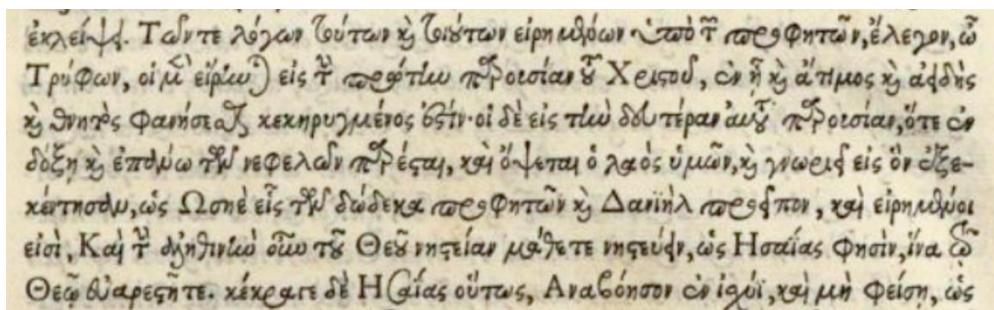 ἐκλείψει. Τῶν τε λόγων τούτων καὶ τοιούτων εἰρημένων ὑπὸ τῶν προφητῶν, ἔλεγον, ὦ
Τρύφων, οἱ μὲν εἴρηνται εἰς τὴν πρώτην παρουσίαν τοῦ Χριστοῦ, ἐν ᾗ καὶ ἄτιμος καὶ ἀειδὴς
καὶ θνητὸς φανήσεσθαι κεκηρυγμένος ἐστίν· οἱ δὲ εἰς τὴν δευτέραν αὐτοῦ παρουσίαν, ὅτε ἐν
δόξῃ καὶ ἐπάνω τῶν νεφελῶν παρέσται, καὶ ὄψεται ὁ λαὸς ὑμῶν, καὶ γνωριεῖ εἰς ὃν ἐξε-
κέντησαν, ὡς Ωσηὲ εἷς τῶν δώδεκα προφητῶν καὶ Δανιὴλ προεῖπον, καὶ εἰρημένοι
εἰσὶ, Καὶ τὴν ἀληθινὴν οὖν τοῦ Θεοῦ νηστείαν μάθετε νηστεύειν, ὡς Ησαΐας φησὶν, ἵνα τῷ
Θεῷ εὐαρεστῆτε. κέκραγε δὲ Ησαΐας οὕτως, Αναβόησον ἐν ἰσχύϊ, καὶ μὴ φείσῃ, ὡς